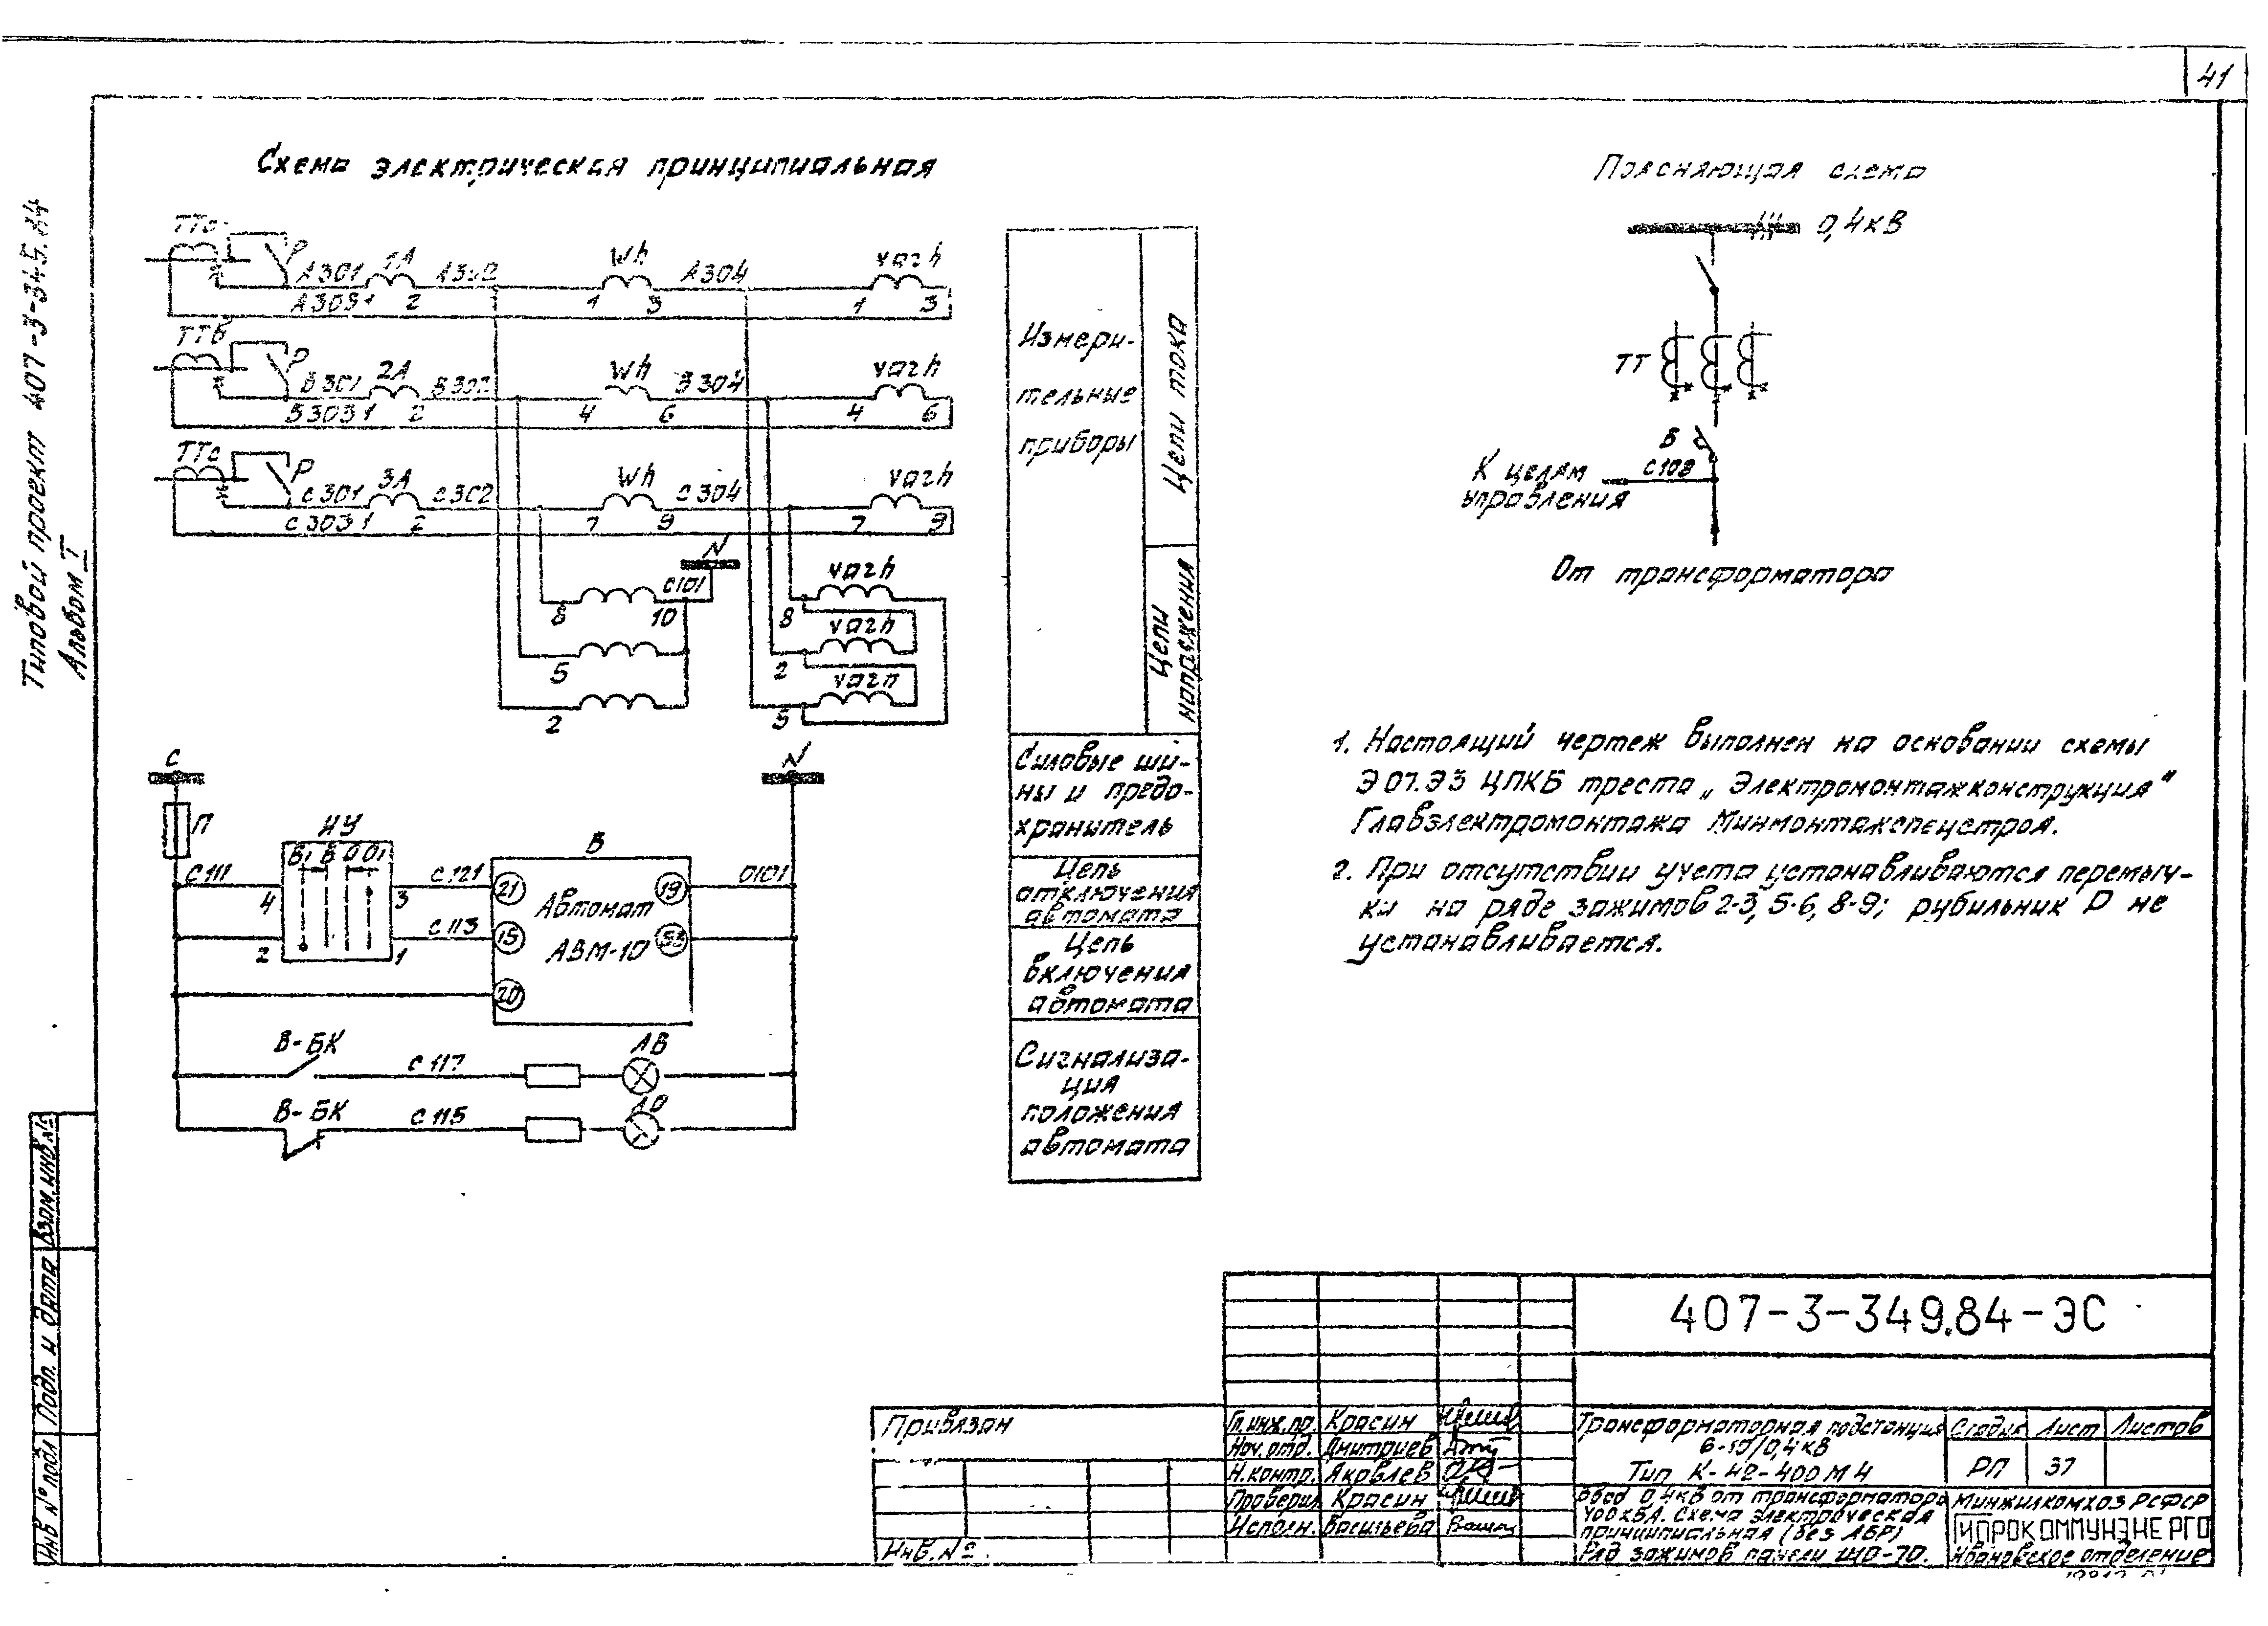 41
Типовой проект 407-3-345.84
Альбом I
Схема электрическая принципиальная
ТТа
Р
А301
1А
А302
Wh
А304
varh
А3031
2
1
3
1
3
ТТв
Р
В301
2А
В302
Wh
В304
varh
В3031
2
4
6
4
6
ТТс
Р
С301
3А
С302
Wh
С304
varh
С3031
2
7
9
7
9
N
С101
varh
8
10
8
varh
5
2
varh
2
5
Измери-
тельные
приборы
Цепи тока
Цепи
напряжения
Силовые ши-
ны и предо-
хранитель
Цепь
отключения
автомата
Цепь
включения
автомата
Сигнализа-
ция
положения
автомата
С
N
П
КУ
В1 В О О1
В
С111
4
3
С121
21
19
0101
Автомат
2
1
С113
15
33
АВМ-10
20
В-БК
С117
ЛВ
В-БК
С115
ЛО
Поясняющая схема
0,4кВ
ТТ
В
С108
К цепям
управления
От трансформатора
1. Настоящий чертеж выполнен на основании схемы
Э07.ЭЗ ЦПКБ треста „Электромонтажконструкция"
Главэлектромонтажа Минмонтажспецстроя.
2. При отсутствии учета устанавливаются перемыч-
ки на ряде зажимов 2-3, 5-6, 8-9; рубильник Р не
устанавливается.
Взам.инв.№
Подп. и дата
Инв № подл
407-3-349.84-ЭС
Привязан
Инв.№
Гл.инж.пр. Красин
Нач.отд. Дмитриев
Н.контр. Яковлев
Проверил Красин
Исполн. Васильева
Трансформаторная подстанция
6-10/0,4кВ
Тип К-42-400 М4
Стадия Лист Листов
РП 37
Ввод 0,4кВ от трансформатора
400кВА. Схема электрическая
принципиальная (без АВР)
Ряд зажимов панели ЩО-70.
Минжилкомхоз РСФСР
ГИПРОКОММУНЭНЕРГО
Ивановское отделение